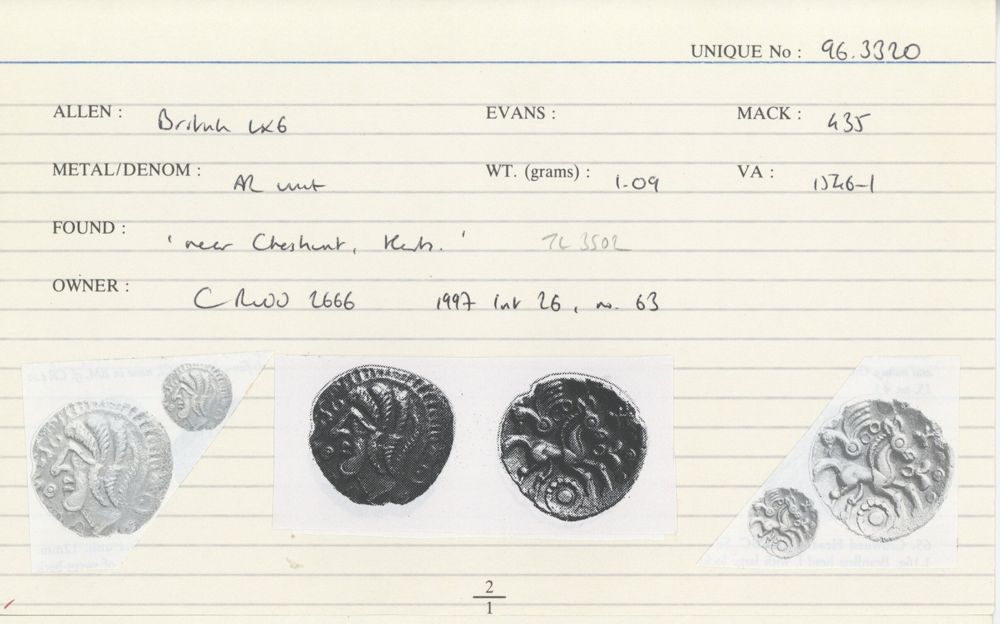 UNIQUE No : 96.3320
ALLEN : British LX6 EVANS : MACK : 435
METAL/DENOM : AR unit WT. (grams) : 1.09 VA : 1546-1
FOUND : 'near Cheshunt, Herts.' TL 3502
OWNER : C R 2666 1997 int 26, no. 63
2
1